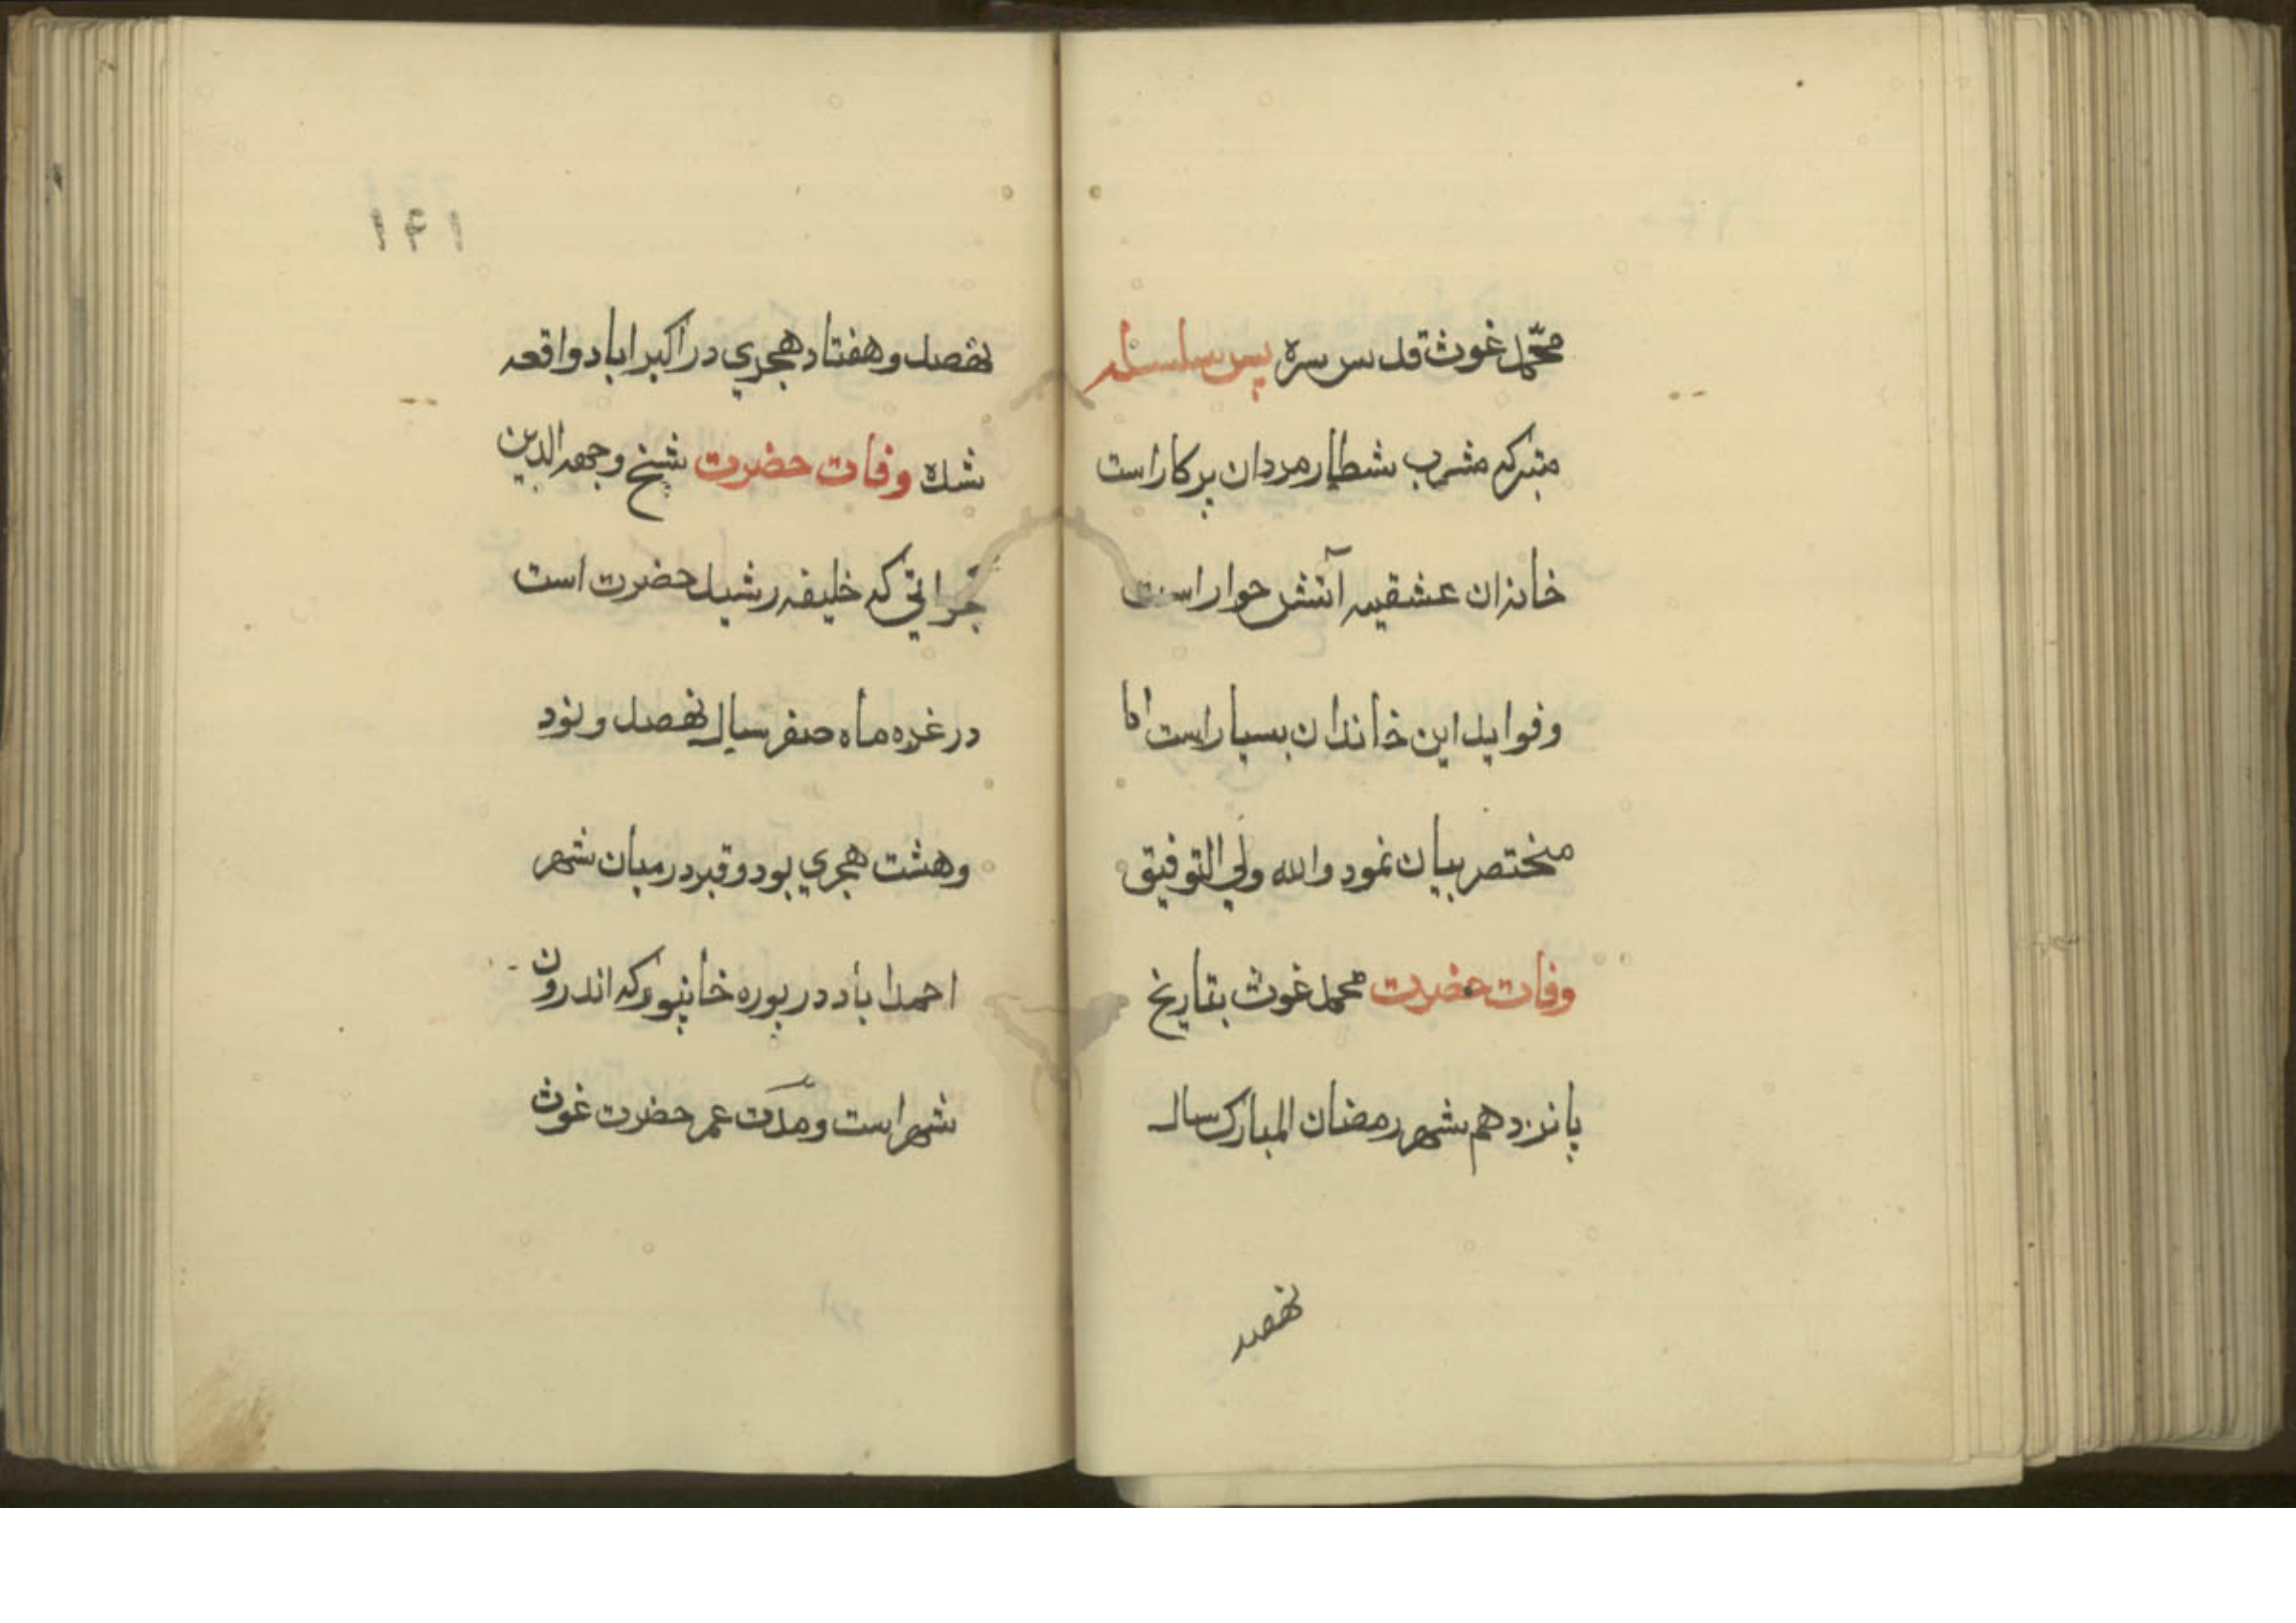 محمّد غوث قدس سره پس سلسله
متبرکه مشرب شطار مردان پرکار است
خانزان عشقیه آتش حوار است
و فواید این خاندان بسیار است اما
منختصر بیان نمود والله ولی التوفیق
وفات حضرت محمد غوث بتاریخ
پانزدهم شهر رمضان المبارک سال
نهصد
۱۴۱
نهصد و هفتاد هجري در اکبراباد واقعه
شده وفات حضرت شیخ وجهه الدین
که خلیفه رشید حضرت است
در غره ماه صفر سال نهصد و نود
و هشت هجري بود و قبر در میان شهر
احمداباد در پوره خانپور که اندرون
شهر است و مدّت عمر حضرت غوث